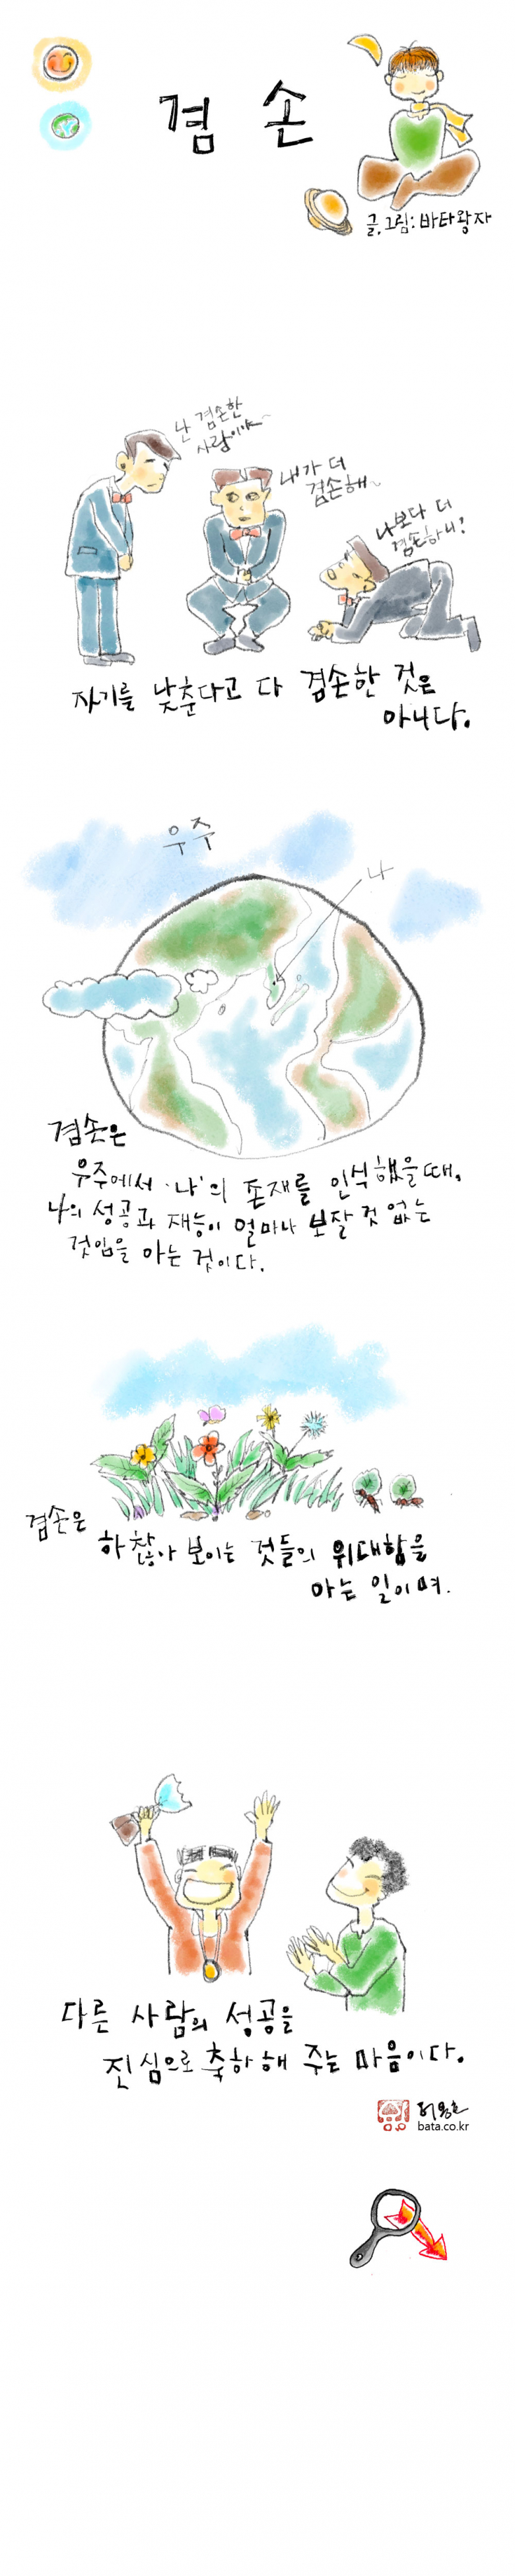 겸손
글,그림:바타왕자
난 겸손한
사람이야~
내가 더
겸손해~
나보다 더
겸손하니?
자기를 낮춘다고 다 겸손한 것은
아니다.
우주
나
겸손은
우주에서 '나'의 존재를 인식했을때,
나의 성공과 재능이 얼마나 보잘것 없는
것임을 아는 것이다.
겸손은
하찮아 보이는 것들의 위대함을
아는 일이며.
다른 사람의 성공을
진심으로 축하해 주는 마음이다.
bata.co.kr